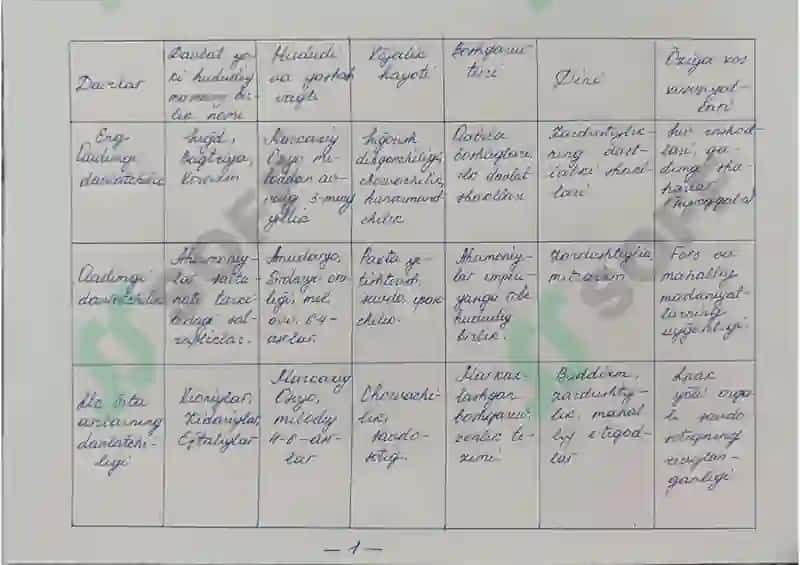 Davrlar
Davlat yo-
ki hududiy
ma'muriy bir-
lik nomi
Hududi
va yashash
vaqti
Xo'jalik
hayoti
Boshqaruv
turi
Dini
Õziga xos
xususiyat-
lari
Eng
Qadimgi
davlatchilik
Sug'd,
Baqtriya,
Xorazm
Markaziy
Osiyo mi-
loddan av-
valgi 3-ming
yillik
Sug'orish
dehqonchiligi,
chorvachilik,
hunarmand-
chilik
Qabila
boshliqlari,
ilk davlat
shakllari
Zardushtiylik-
ning dast-
labki shakl-
lari
inshoot-
lari, qa-
dimgi sha-
harlar
Qadimgi
davlatchilik
Ahamoniy-
lar salta-
nati tarki-
bidagi sat-
rapliklar.
Amudaryo,
Sirdaryo ora-
lig'i, mil.
avv. 6-4-
asrlar.
Paxta ye-
tishtirish,
savdo, ipak-
chilik.
Ahamoniy-
lar imperi-
yasiga tobe
hududiy
birlik.
Zardushtiylik,
mitraizm
Fors va
mahalliy
madaniyat-
larning
uyg'unligi.
Ilk õrta
asrlarning
davlatchi-
ligi
Xioniylar,
Kidariylar,
Eftaliylar
Markaziy
Osiyo,
milodiy
4-6-asr-
lar
Chorvachi-
lik,
savdo-
sotiq.
Markaz-
lashgan
boshqaruv,
xonlik ti-
zimi
Buddizm,
zardushtiy-
lik, mahal-
liy e'tiqod-
lar
Ipak
yõli orqa-
li savdo
sotiqning
rivojlan-
ganligi
– 1 –